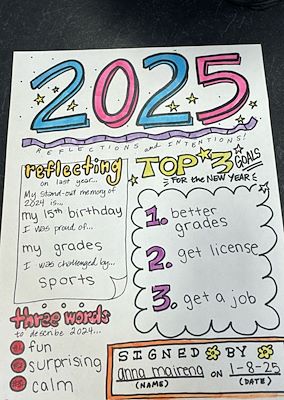 2025
REFLECTIONS and INTENTIONS!
reflecting
on last year...
My stand-out memory of
2024 is...
my 15th birthday
I was proud of...
my grades
I was challenged by...
sports
TOP 3 GOALS
FOR the NEW YEAR
1. better
grades
2. get license
3. get a job
three words
to describe 2024...
#1: fun
#2: surprising
#3: calm
SIGNED BY
anna mairena ON 1-8-25
(NAME) (DATE)